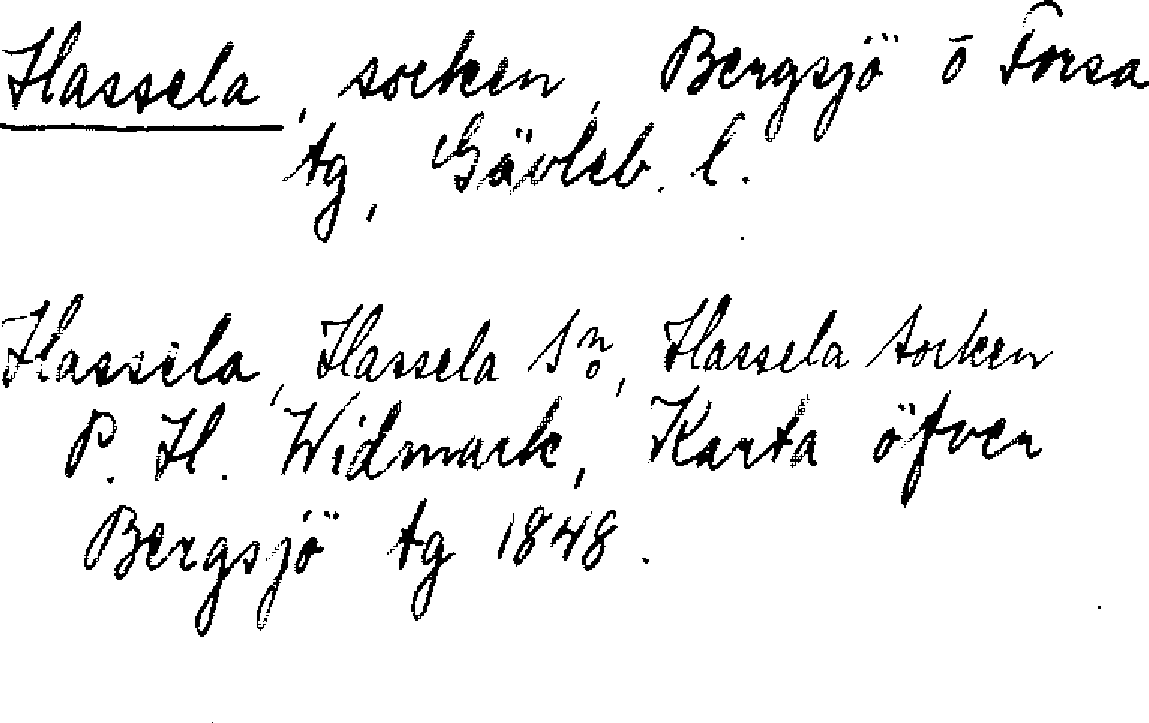 Hassela, socken, Bergsjö o Forsa
tg, Gävleb. l.
Hassela, Hassela Sn, Hassela Socken
P. H. Widmark, Karta öfver
Bergsjö tg 1848.